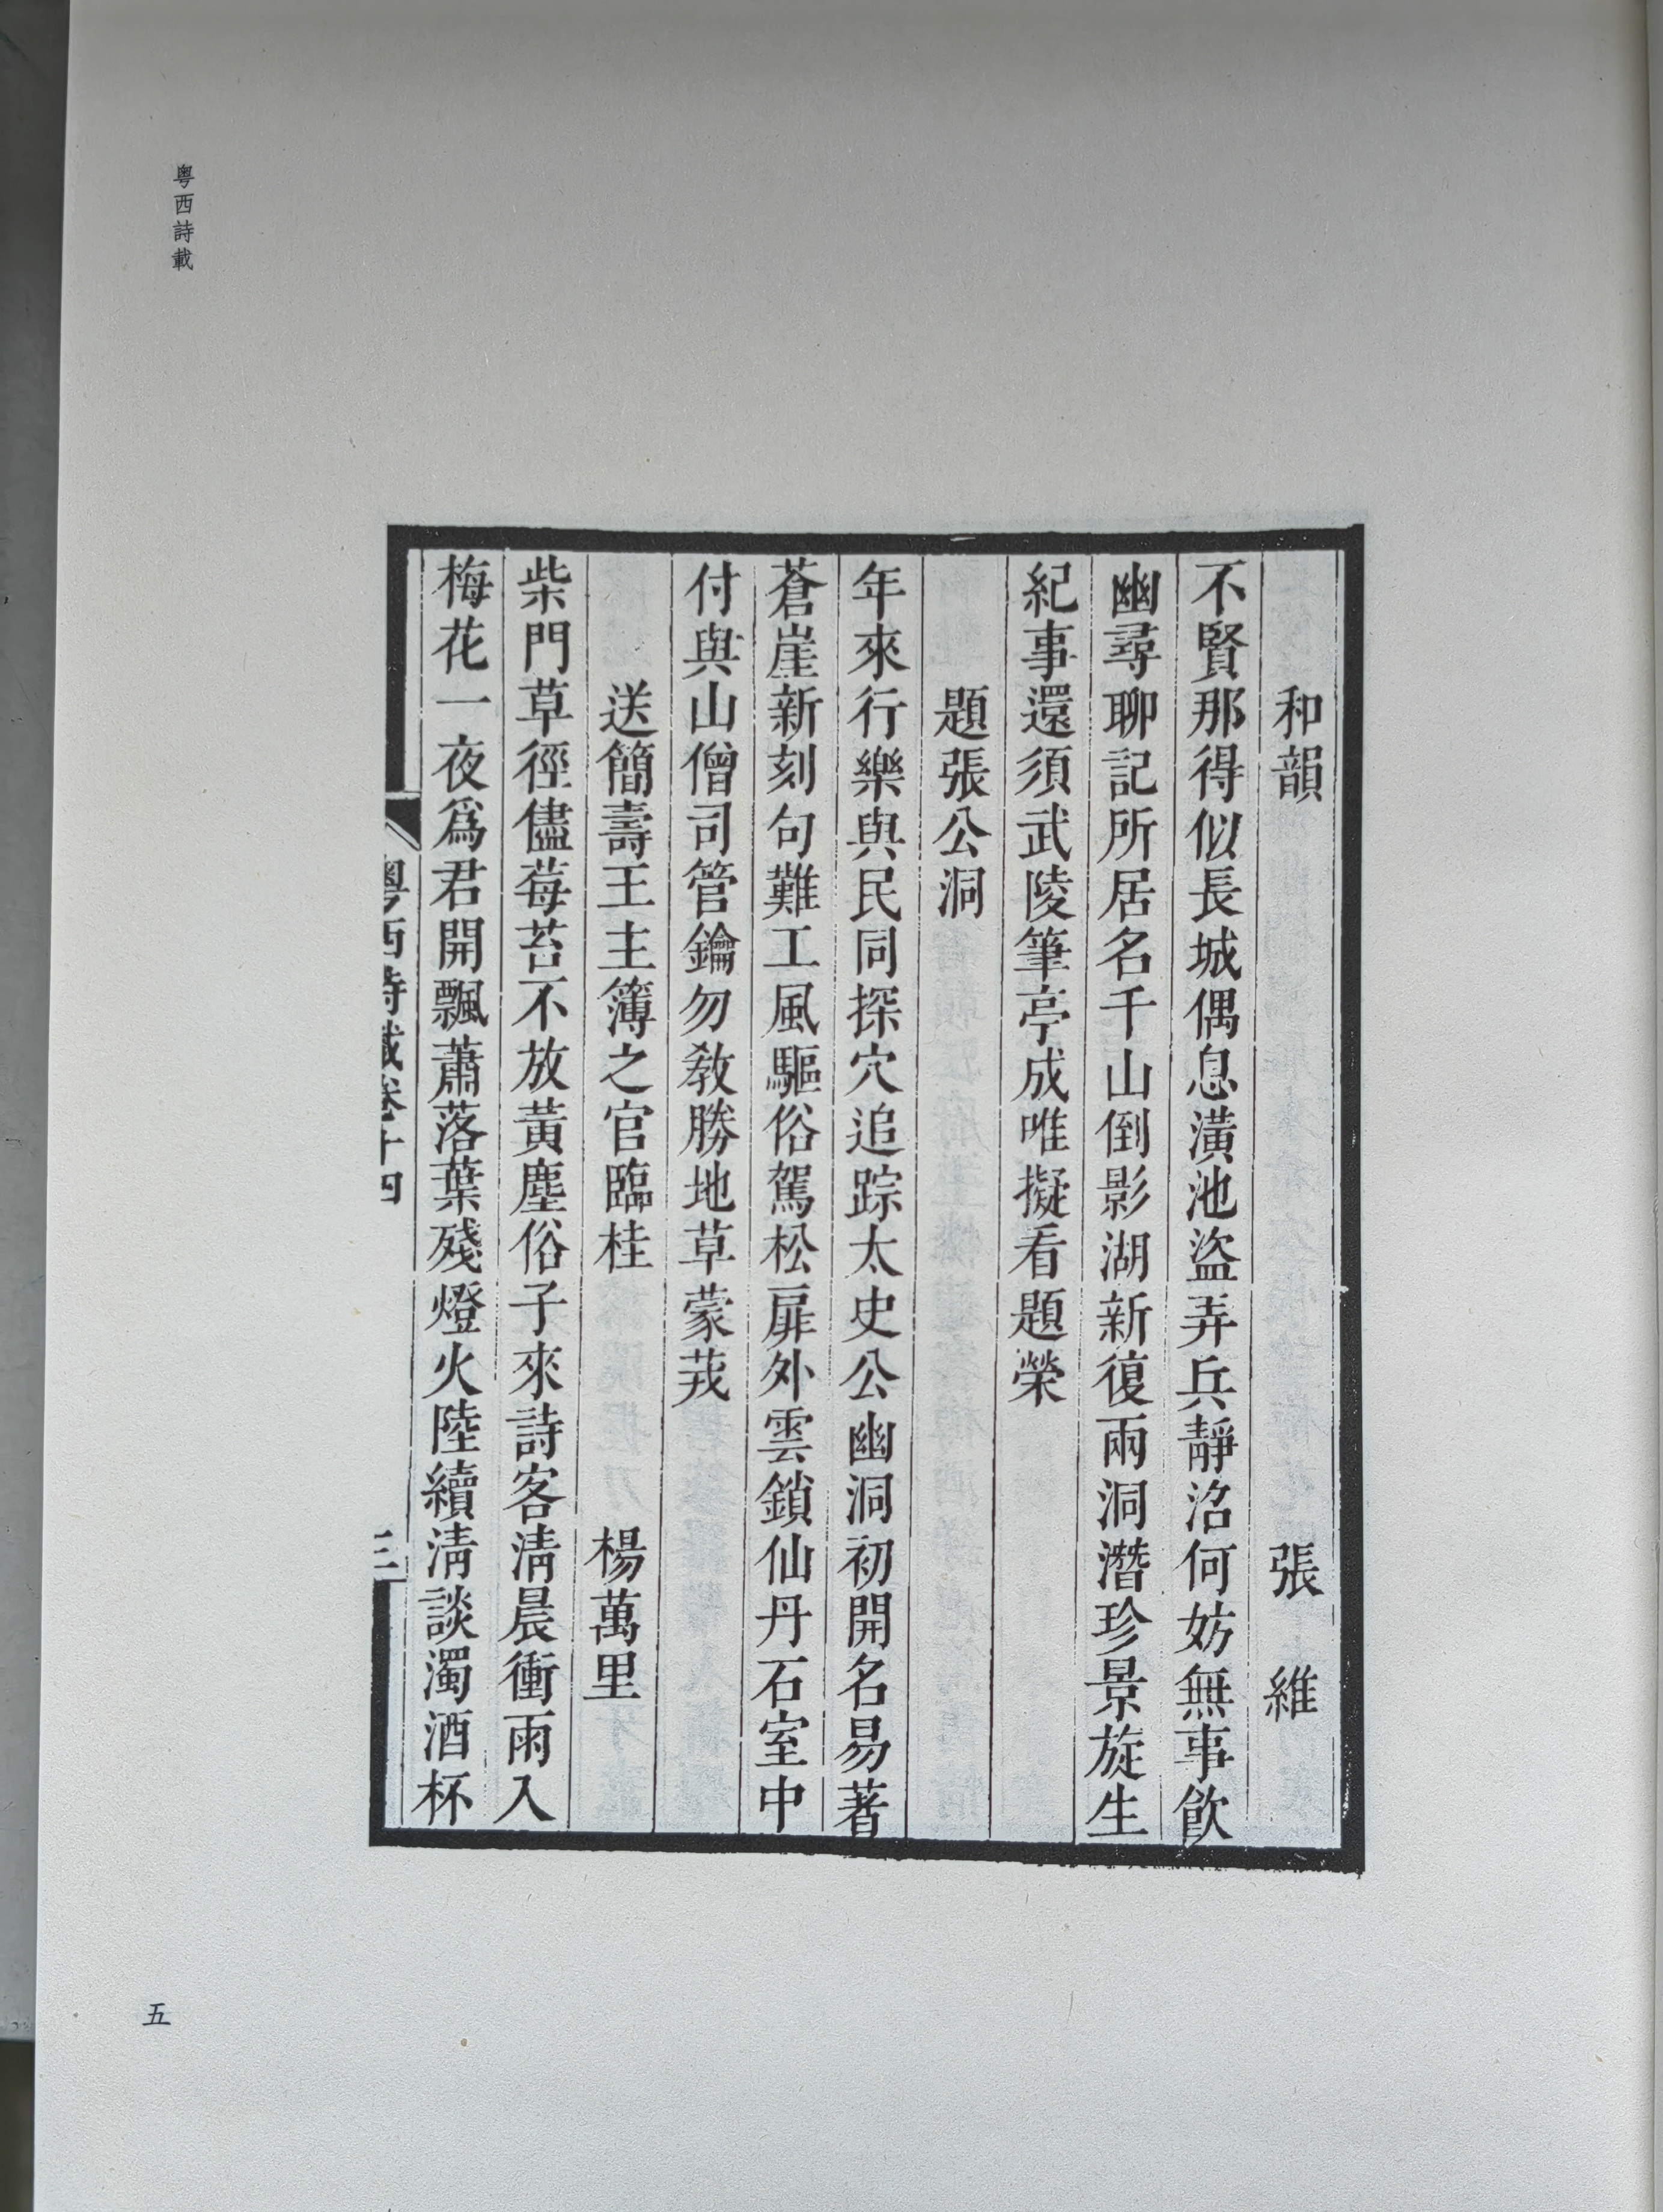 粤西詩載
和韻 張維
不賢那得似長城偶息潢池盜弄兵靜治何妨無事飲
幽尋聊記所居名千山倒影湖新復兩洞潛珍景旋生
紀事還須武陵筆亭成唯擬看題榮
題張公洞
年來行樂與民同探穴追踪太史公幽洞初開名易著
蒼崖新刻句難工風驅俗駕松扉外雲鎖仙丹石室中
付與山僧司管鑰勿教勝地草蒙茂
送簡壽王主簿之官臨桂 楊萬里
柴門草徑儘莓苔不放黃塵俗子來詩客清晨衝雨入
梅花一夜爲君開飄蕭落葉殘燈火陸續清談濁酒杯
粵西詩載卷十四
三
五